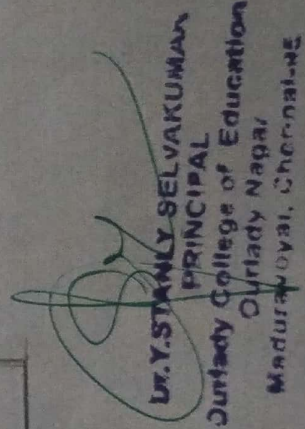 Dr.Y.STANLY SELVAKUMAR
PRINCIPAL
Ourlady College of Education
Ourlady Nagar
Maduravoyal, Chennai-95